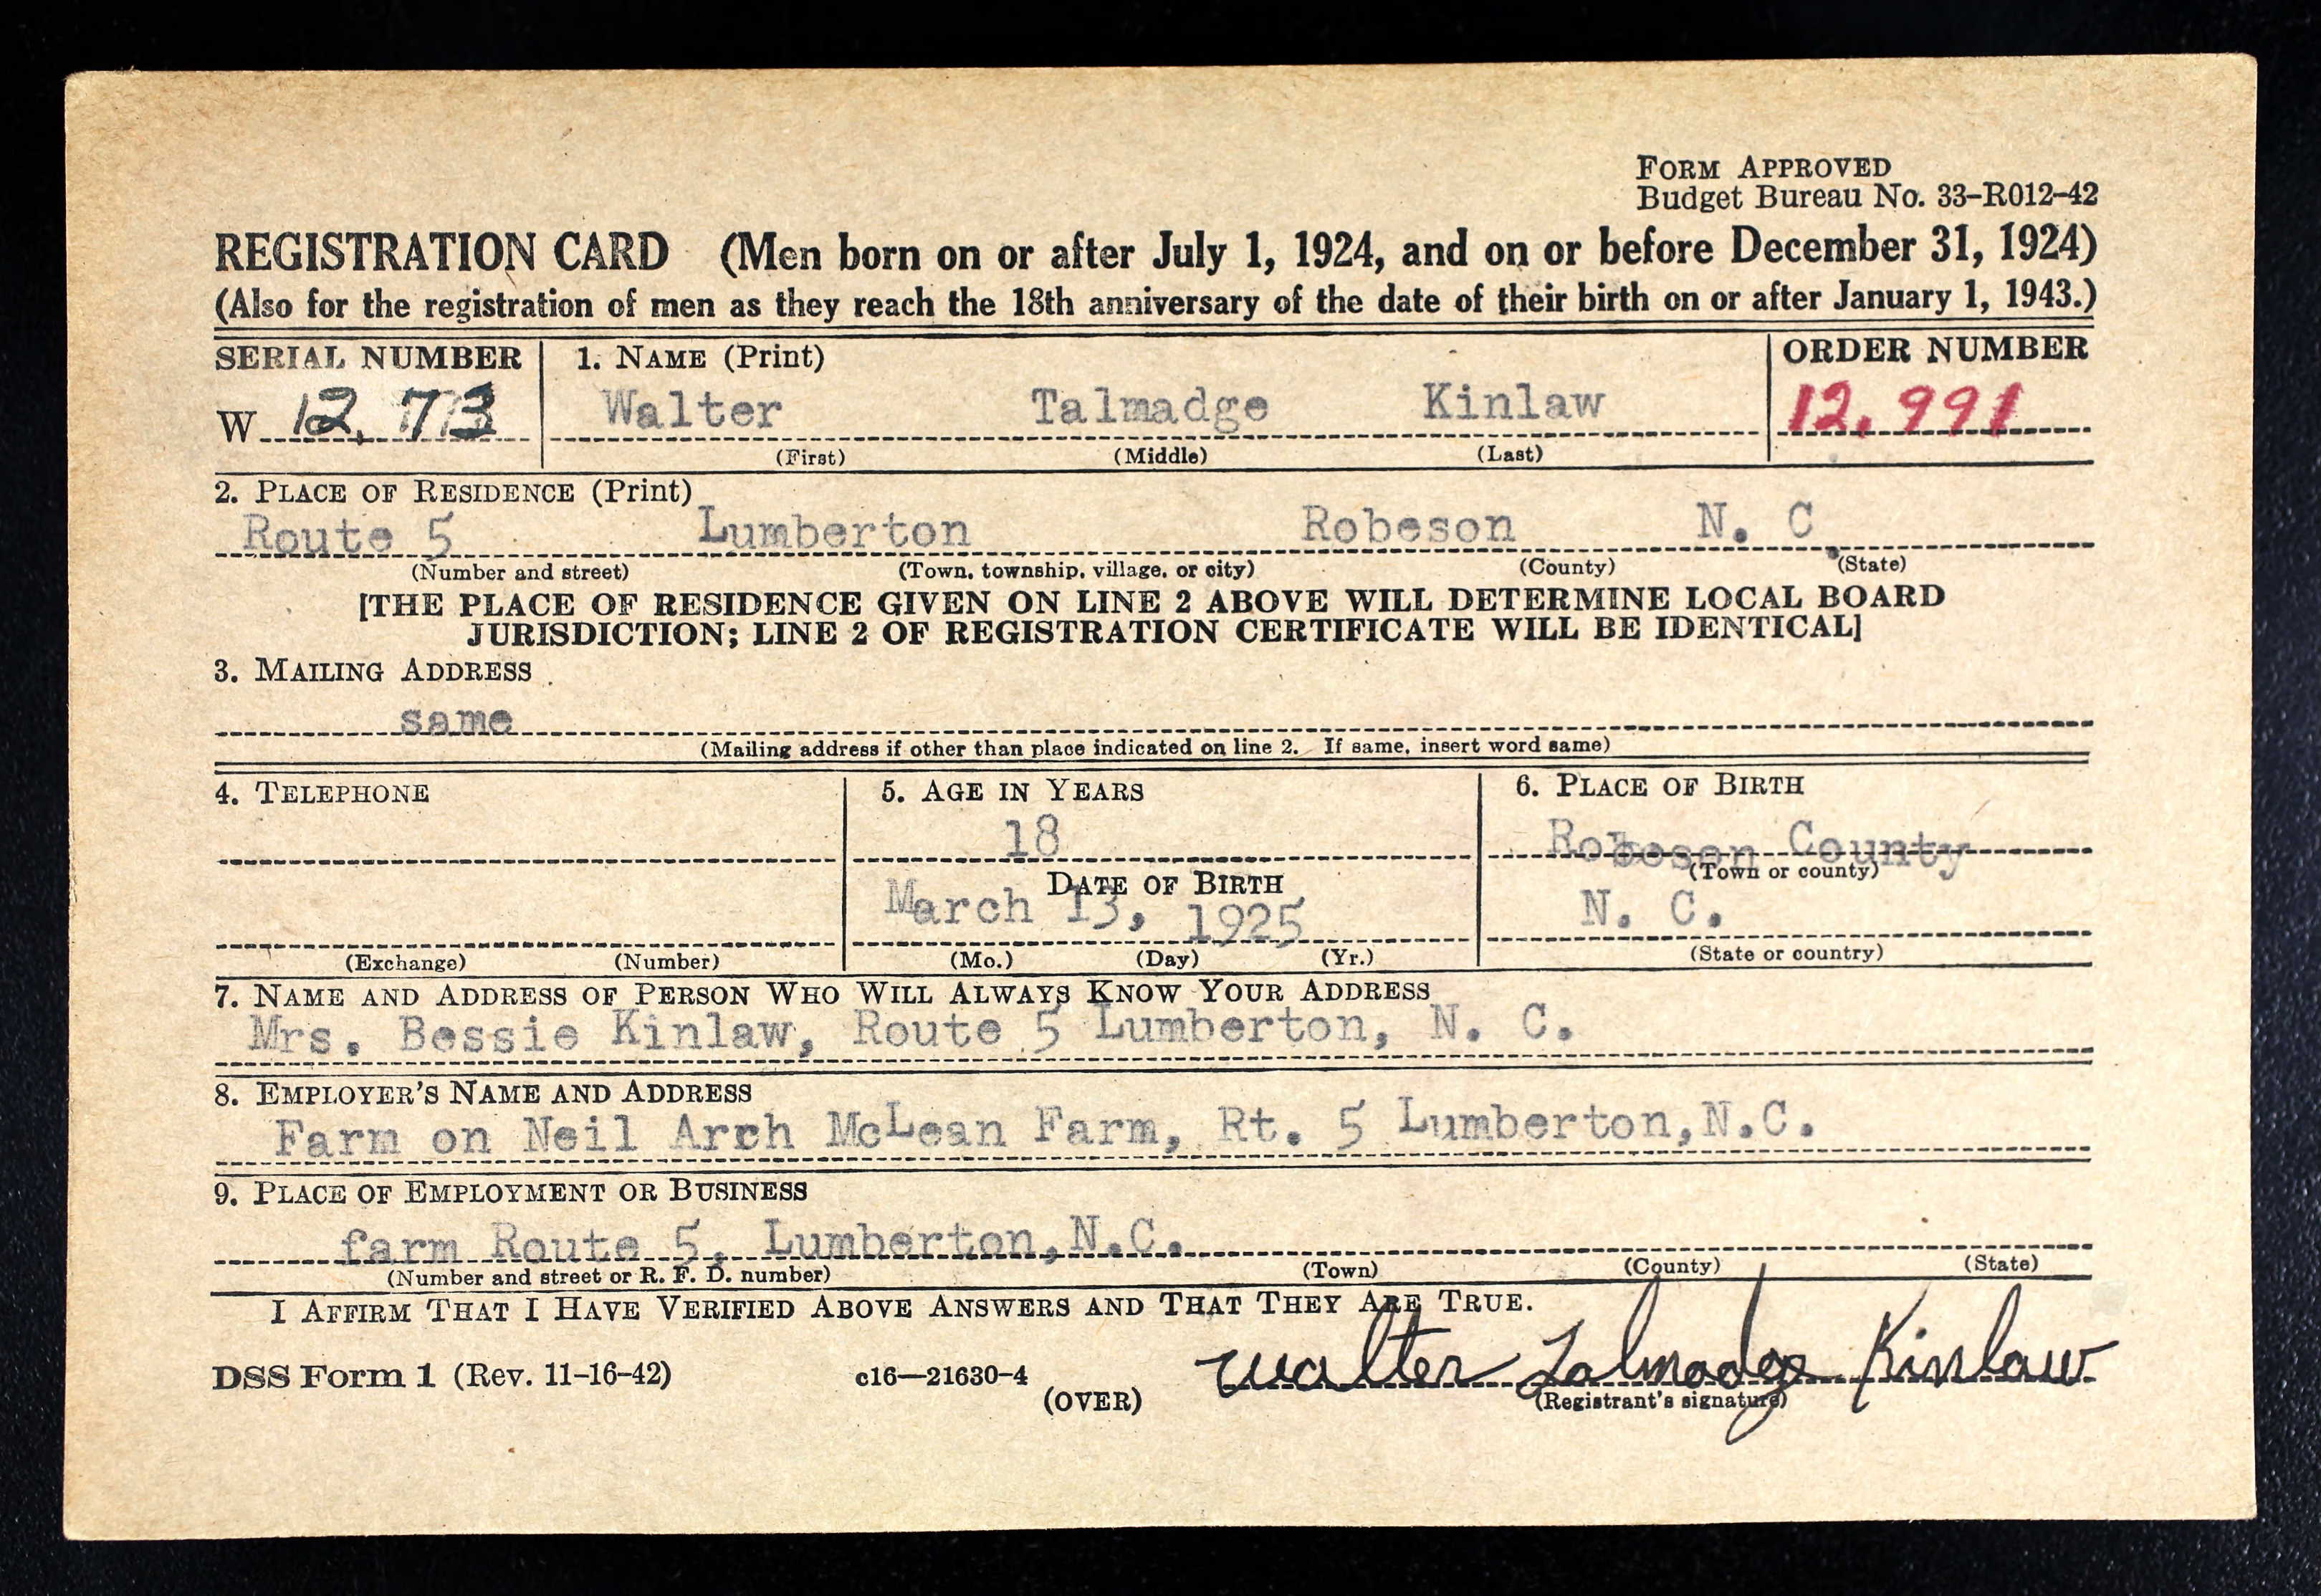 FORM APPROVED
Budget Bureau No. 33-R012-42
REGISTRATION CARD (Men born on or after July 1, 1924, and on or before December 31, 1924)
(Also for the registration of men as they reach the 18th anniversary of the date of their birth on or after January 1, 1943.)
SERIAL NUMBER 1. NAME (Print) ORDER NUMBER
W 12, Walter Talmadge Kinlaw 12,991
(First) (Middle) (Last)
2. PLACE OF RESIDENCE (Print)
Route 5 Lumberton Robeson N. C.
(Number and street) (Town, township, village, or city) (County) (State)
[THE PLACE OF RESIDENCE GIVEN ON LINE 2 ABOVE WILL DETERMINE LOCAL BOARD
JURISDICTION; LINE 2 OF REGISTRATION CERTIFICATE WILL BE IDENTICAL]
3. MAILING ADDRESS
same
(Mailing address if other than place indicated on line 2. If same, insert word same)
4. TELEPHONE 5. AGE IN YEARS 6. PLACE OF BIRTH
18 Robeson County
(Town or county)
DATE OF BIRTH
March 13, 1925 N. C.
(Exchange) (Number) (Mo.) (Day) (Yr.) (State or country)
7. NAME AND ADDRESS OF PERSON WHO WILL ALWAYS KNOW YOUR ADDRESS
Mrs. Bessie Kinlaw, Route 5 Lumberton, N. C.
8. EMPLOYER'S NAME AND ADDRESS
Farm on Neil Arch McLean Farm, Rt. 5 Lumberton,N.C.
9. PLACE OF EMPLOYMENT OR BUSINESS
farm Route 5, Lumberton,N.C.
(Number and street or R. F. D. number) (Town) (County) (State)
I AFFIRM THAT I HAVE VERIFIED ABOVE ANSWERS AND THAT THEY ARE TRUE.
DSS Form 1 (Rev. 11-16-42) c16—21630-4 Walter Talmadge Kinlaw
(OVER) (Registrant's signature)